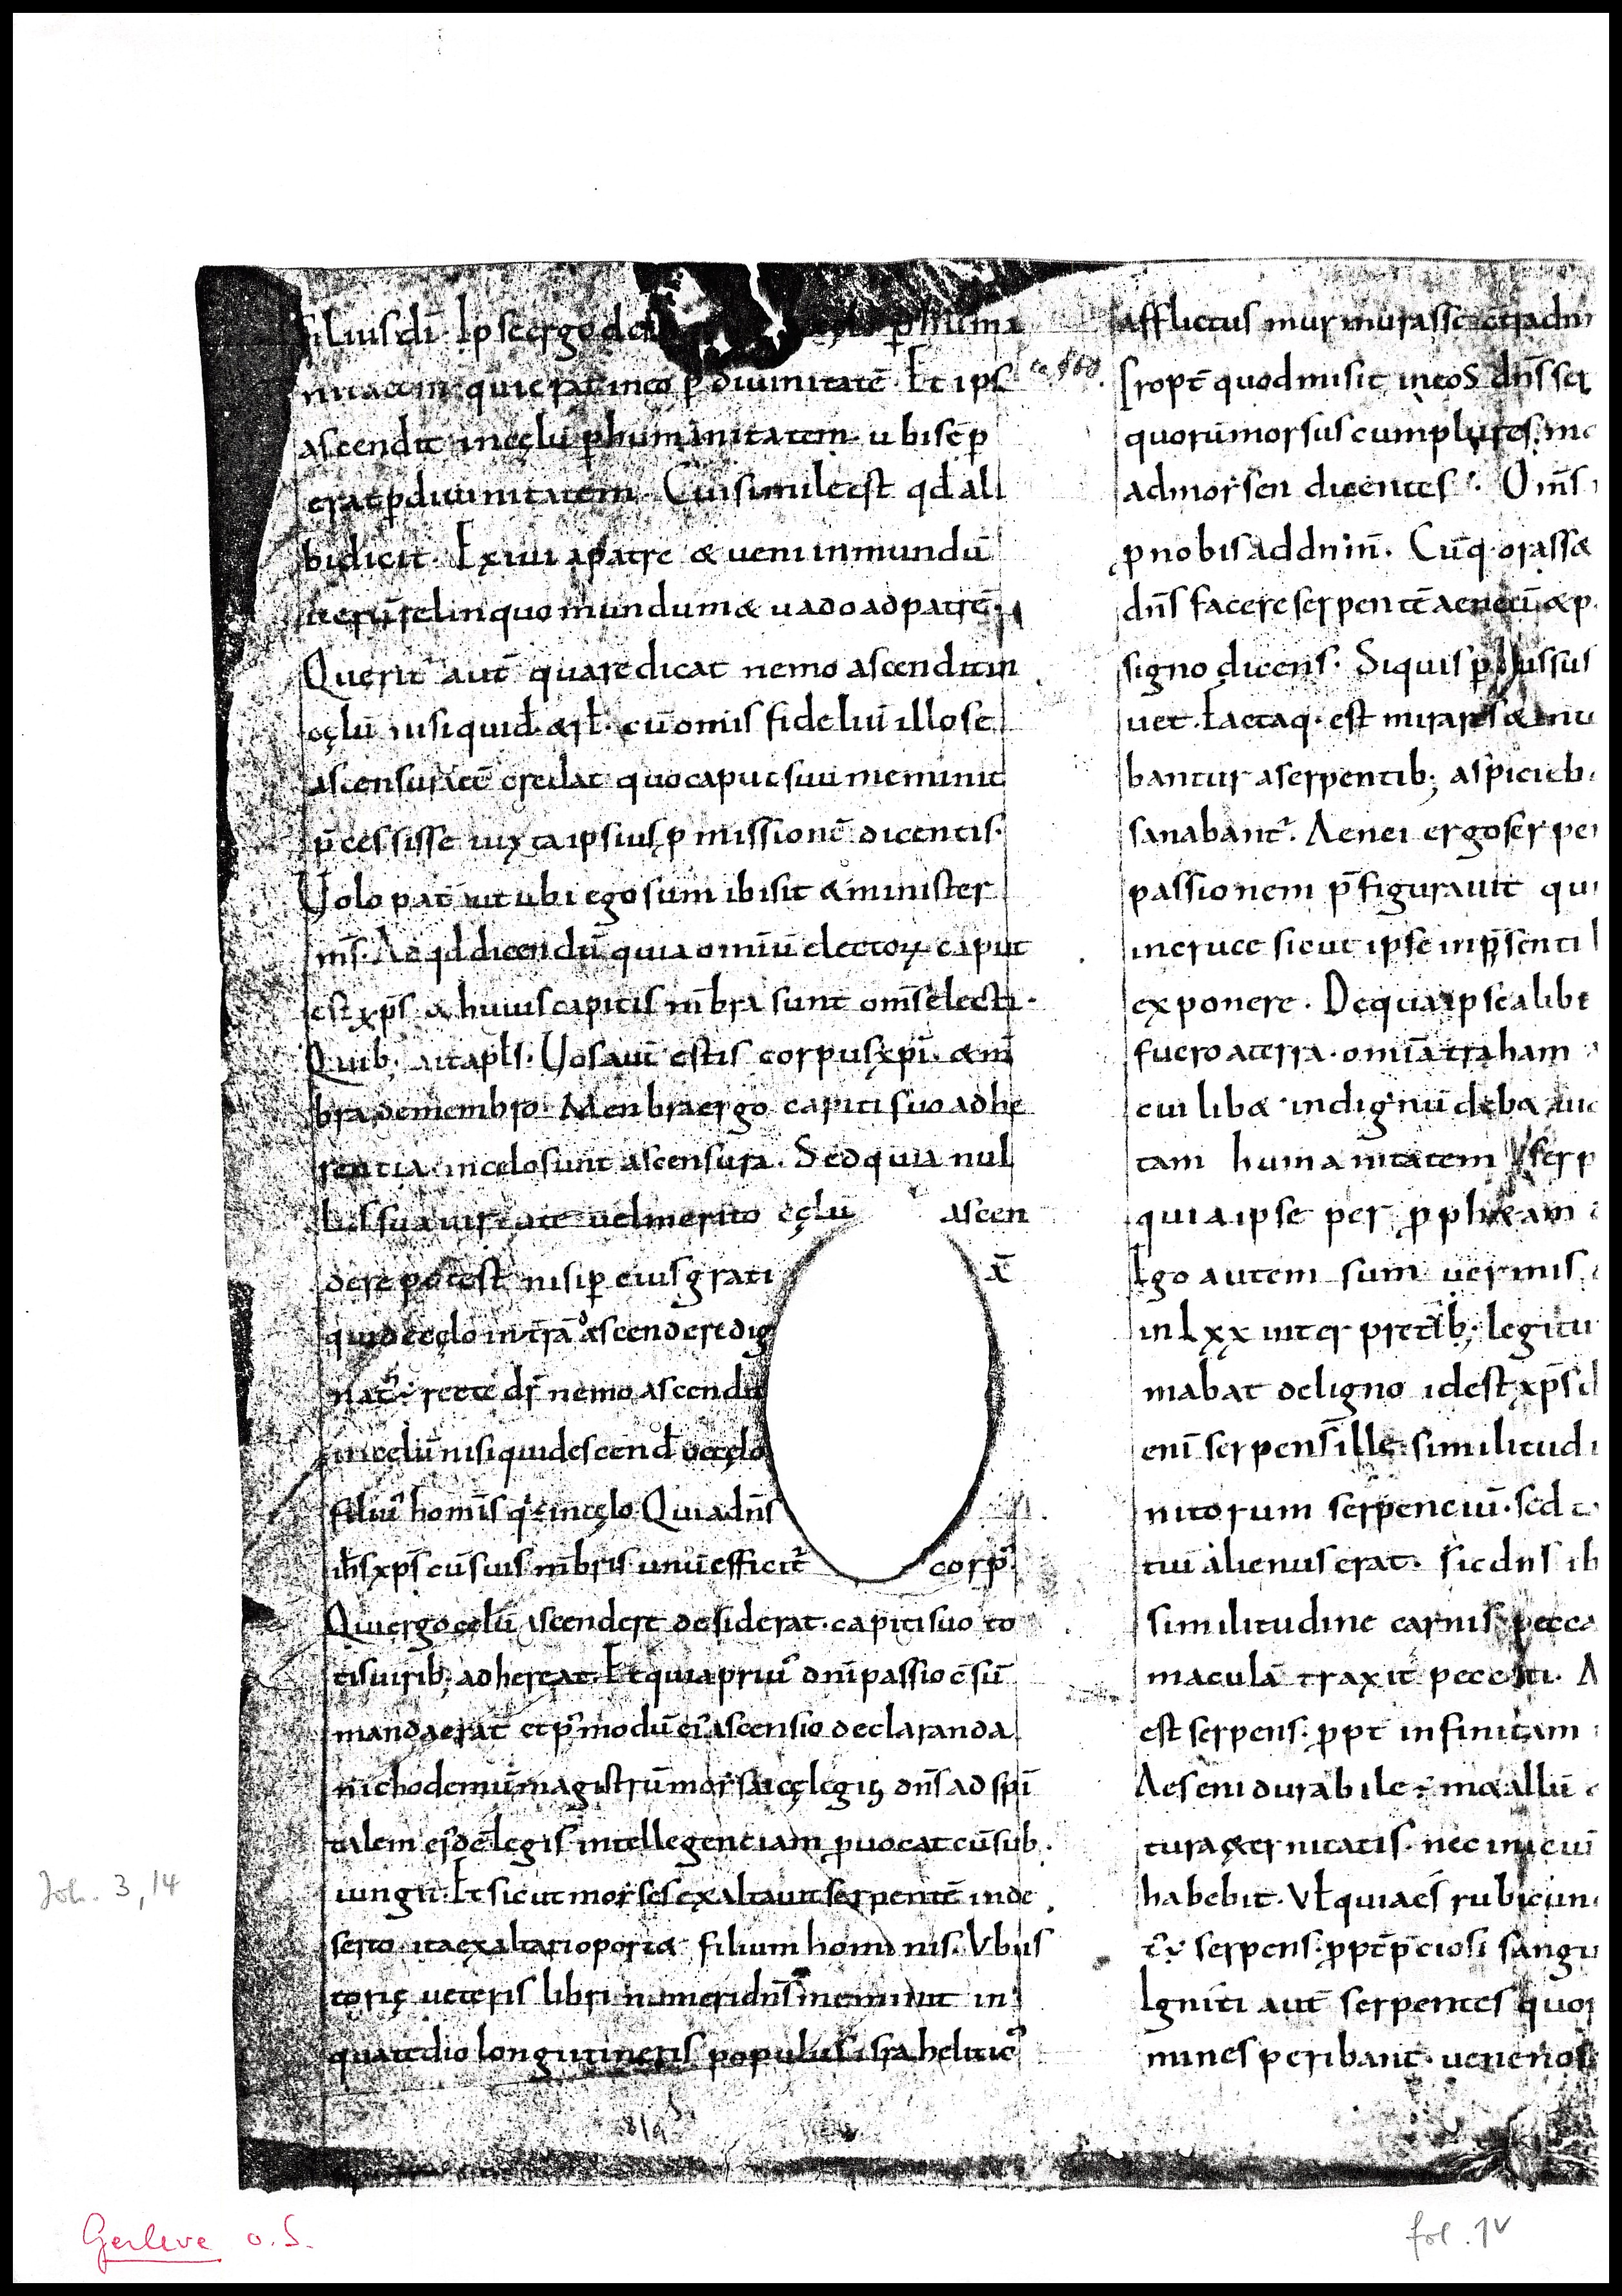 filius di. Ipse ergo de cęlo p huma
nitatem qui erat in eo p diuinitatē. Et ips
ca 800.
ascendit in cęlū p humanitatem. ubi sēp
erat p diuinitatem. Cui simile est qđ ali
bi dicit. Exiui a patre & ueni in mundū
iterū relinquo mundum & uado ad patrē.
Querit aut̄ quare dicat nemo ascendit in
cęlū nisi qui đ. & rł. cū omīs fideliū illo se
ascensurā t̄ē credat quo caput suū meminit
p̄cessisse iuxta ipsius pmissionē dicentis.
Uolo pat̄ ut ubi ego sum ibi sit & minister
m̄s. Ad qđ dicendū quia omīū electoꝝ caput
est xp̄s. & huius capitis m̄bra sunt om̄s electi.
Quib; ait apłs. Uos aut̄ estis corpus xp̄i. & m̄
bra de membro. Menbra ergo capiti suo adhe
rentia in celo sunt ascensura. Sed quia nul
lus sua uirtute uel merito cęlū ascen
dere potest nisi p eius grati ā
qui de cęlo in t̄rā ascendere dig
nat̄. recte dr̄ nemo ascendit
in cęlū nisi qui descend̄ de cęlo
filiuˀ homīs q ÷ in cęlo. Quia dn̄s
ih̄s xp̄s cū suis m̄bris unū efficit̄ corpˀ.
Qui ergo celū ascendere desiderat. capiti suo to
tis uirib; adhereat. Et quia priuˀ dn̄i passio c̄sū
manda erat et pˀ modū eiˀ ascensio declaranda
nichodemū magistrū morsaicę legis dn̄s ad sp̄i
talem eiˀdē legis intellegenciam puocat cū sub
iungit. Et sicut morses exaltauit serpentē in de
Joh. 3,14
serto. ita exaltari oport& filium hominis. Ubi is
torię ueteris libri numeri dn̄s meminit in
qua tedio longi itineris populus israheliticˀ
819
afflictus murmurasse
[ropt̄ quod misit in eos dn̄s ser
quorū morsus cum plures. mo
ad morsen dicentes. Om̄s
p nobis ad dnīn̄. Cūq. orass&
dn̄s facere serpentē aeneū & p
signo dicens. Siquis pcussus
uet. Factaq. est
bantur a serpentib; aspicieb
sanabant̄. Aenei ergo serpen
passionem p̄figurauit qui
in cruce sicut ipse in p̄senti l
exponere. De qua ipse alibi
fuero a terra. omīa traham
cui lib& indignū deb&
tam humanitatem serp
quia ipse per pph&am
Ego autem sum uermis
in Lxx interpretib; legitu
mabat de ligno id est xp̄s
enī serpens ille. similitudi
nitorum serpenciū. sed
tui alienus erat. sic dn̄s ih
similitudine carnis pecca
maculā traxit peccati. A
est serpens. ppt infinitam
Aes eni durabile ÷ m&allū
tura &ernitatis. nec
habebit. Uł quia aes rubicun
serpens. ppt̄ p̄ciosi sangu
Igniti aut̄ serpentes quor
mines peribant. uenenos
Gerleve o.S.
fol. 1v